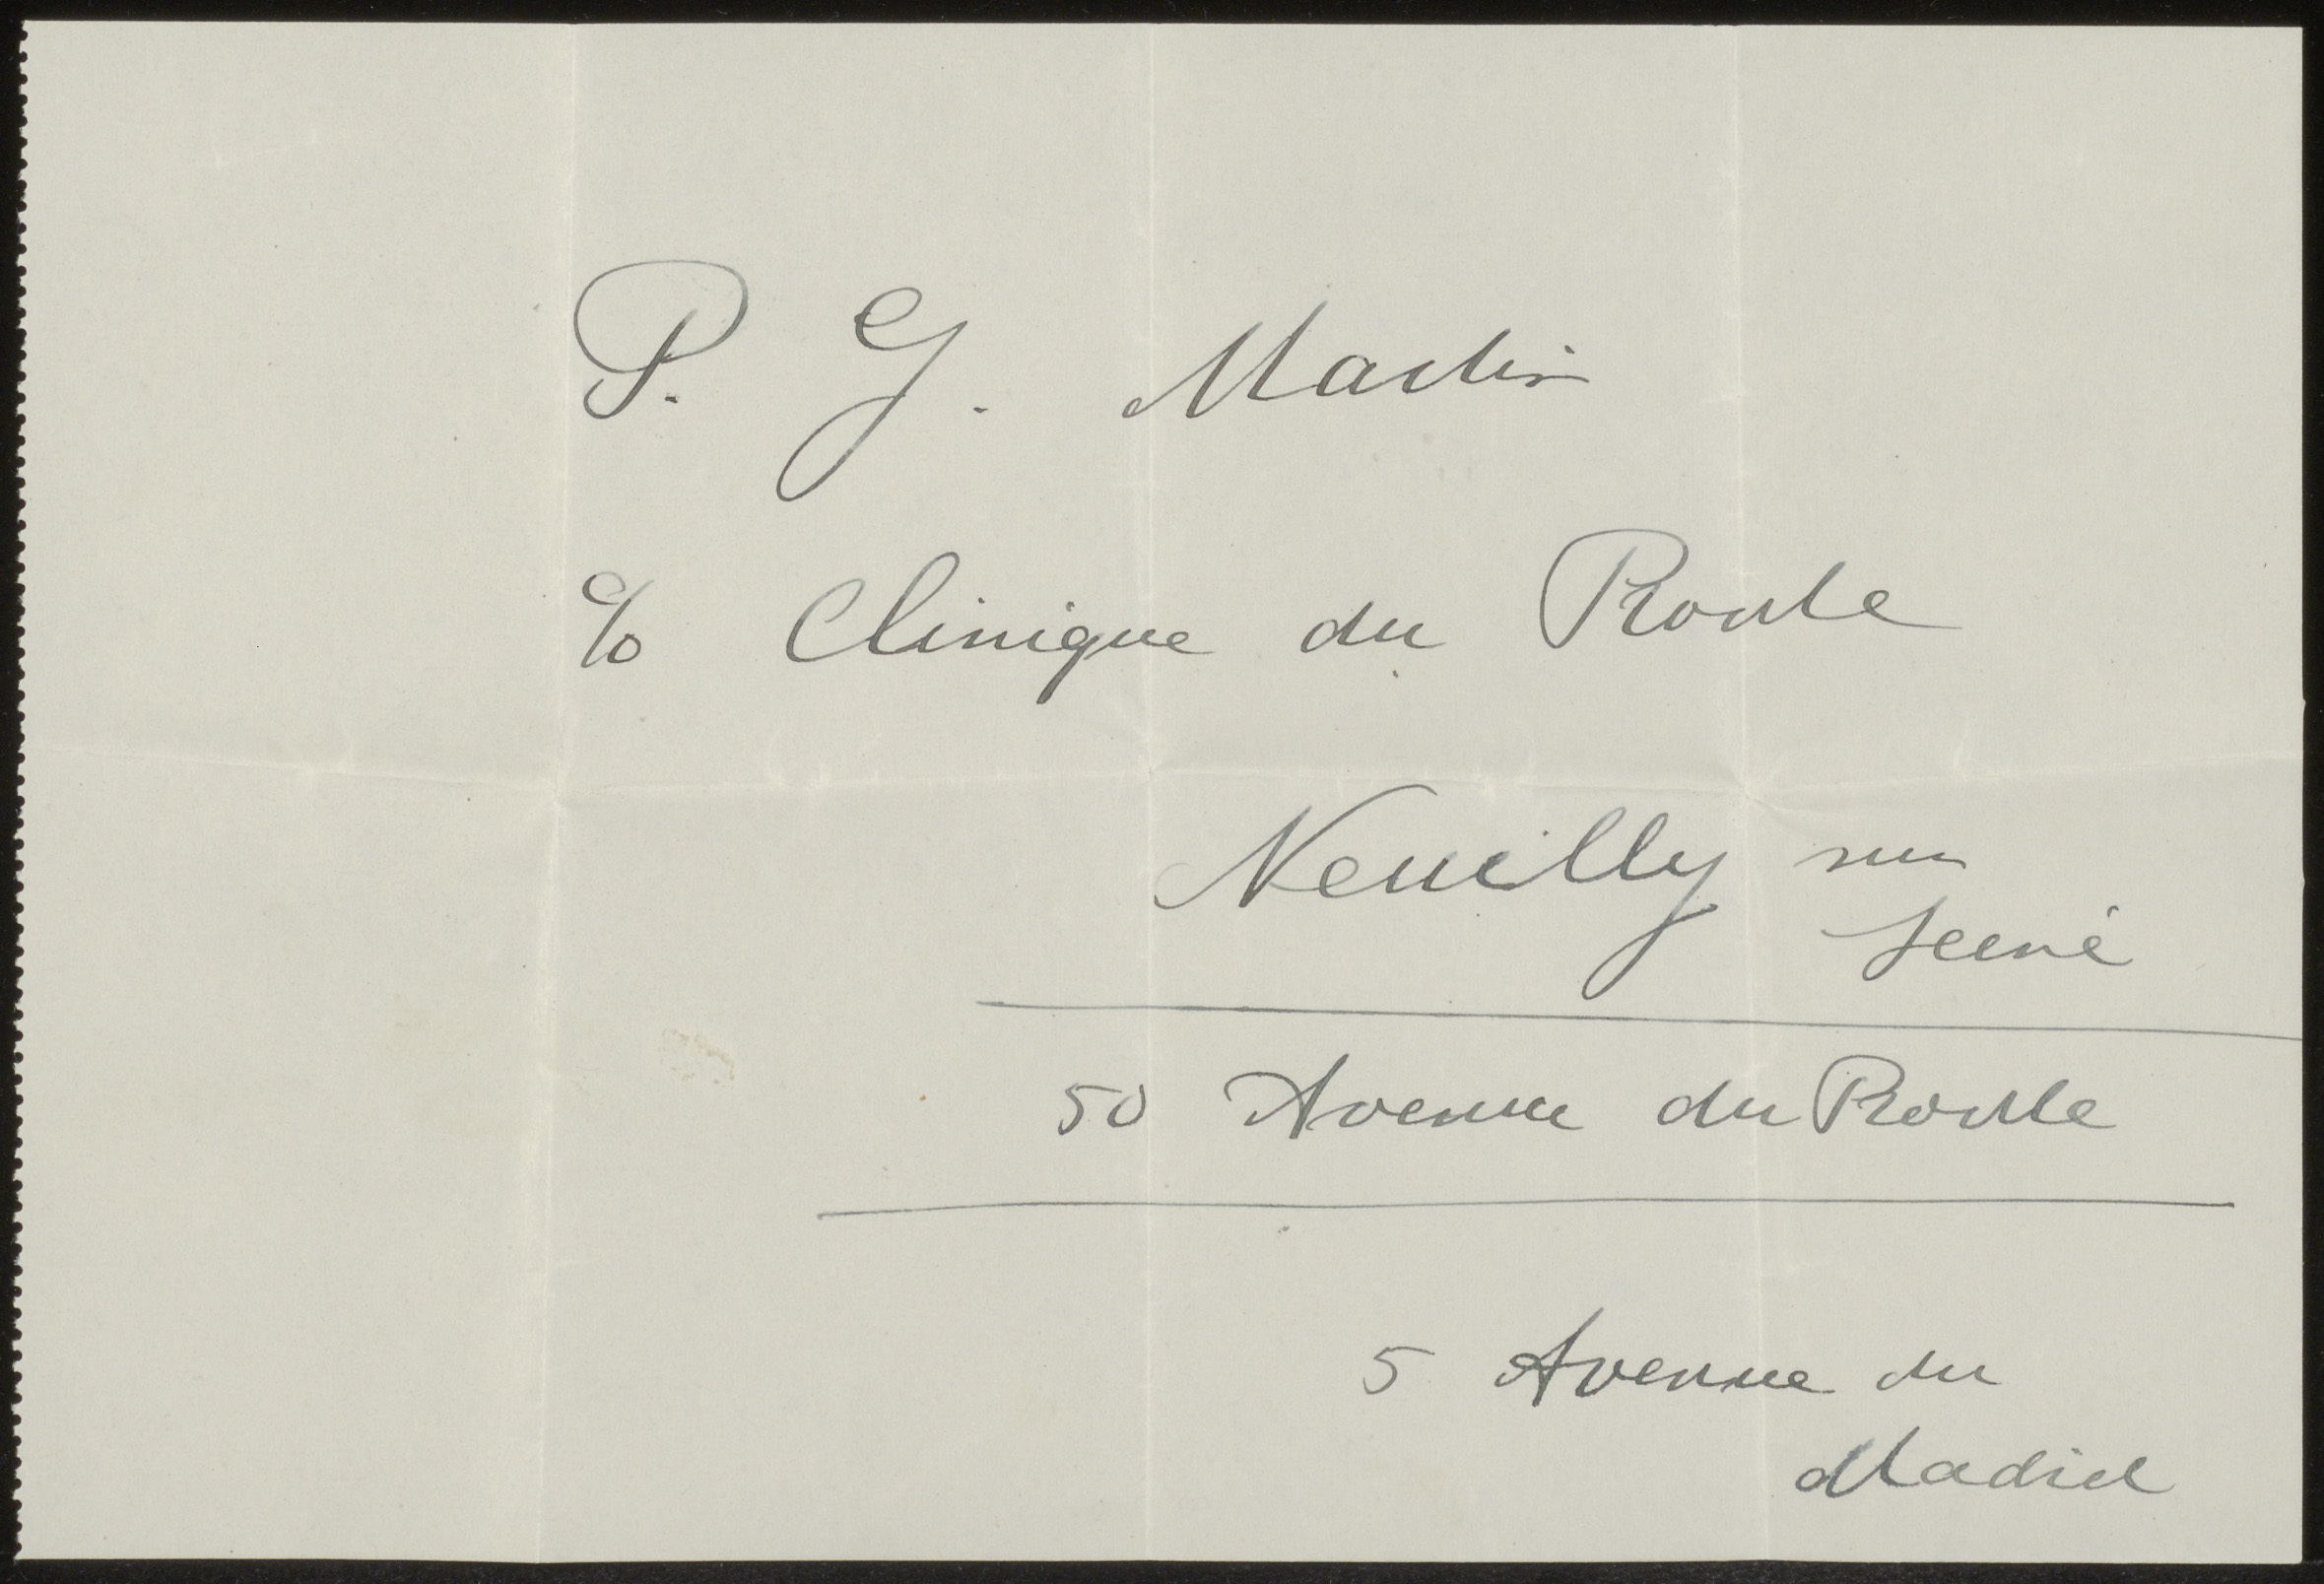 P. G. Martin
c/o Clinique du Roule
Neuilly sur
Seine
50 Avenue du Roule
5 Avenue du
Madrid